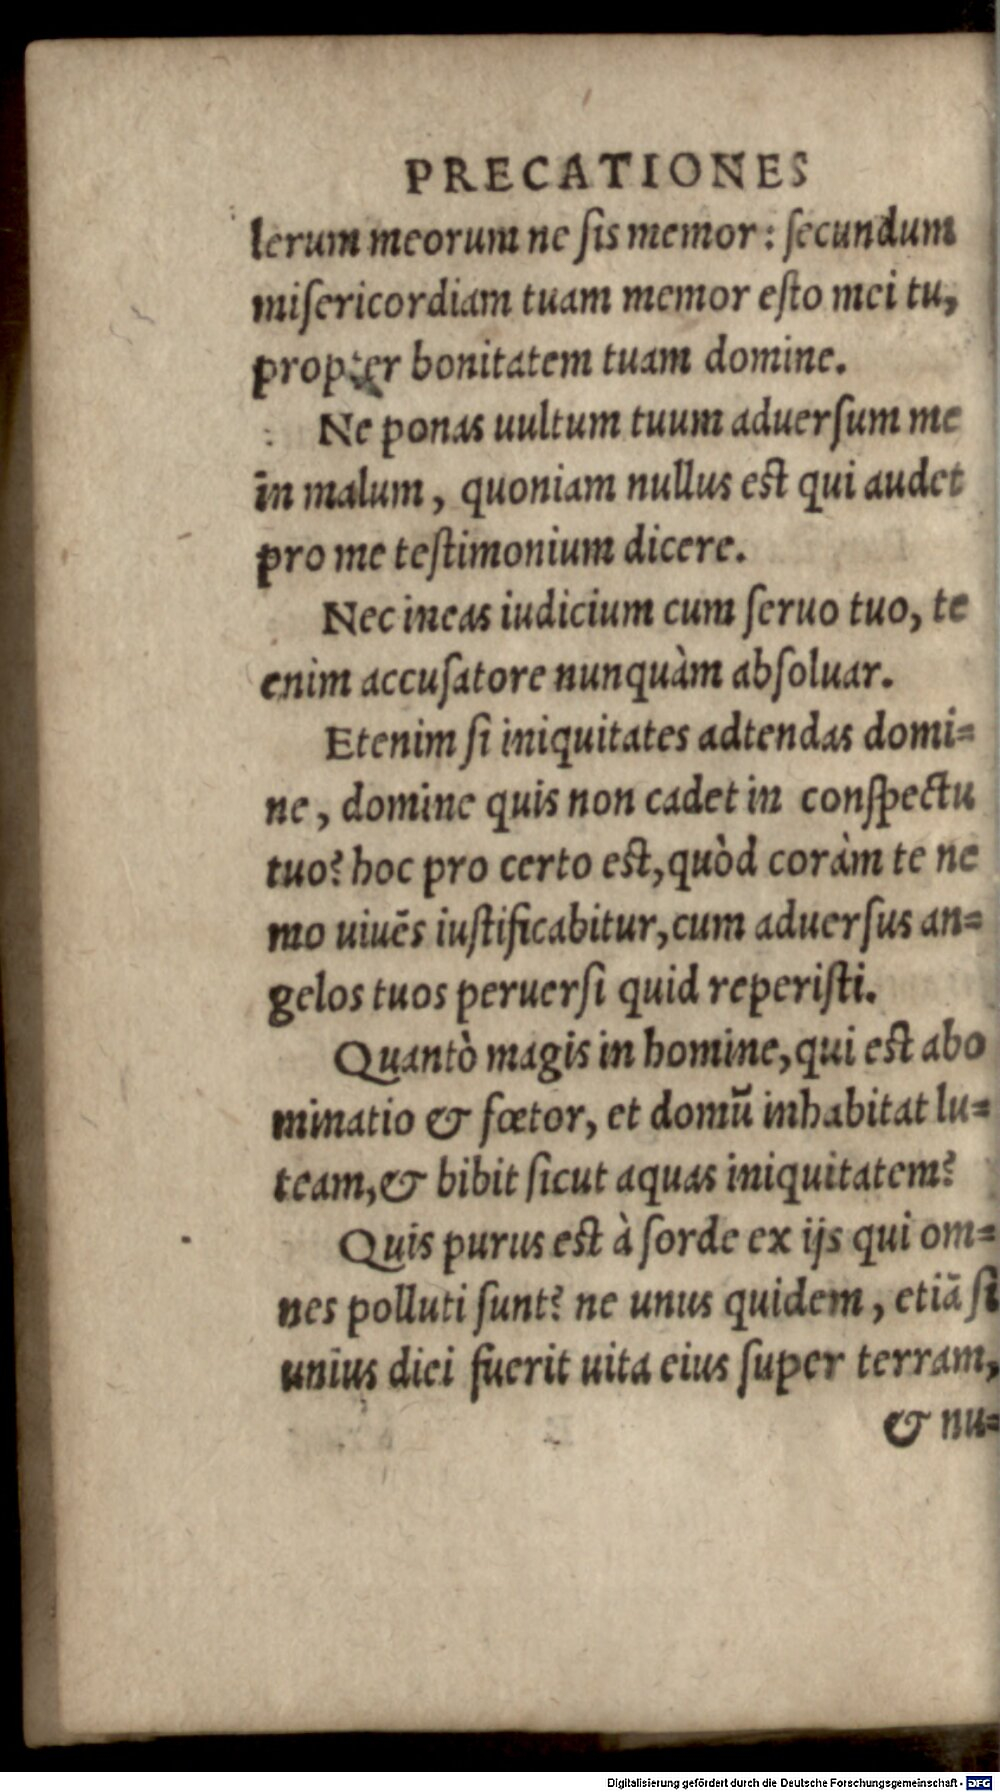 PRECATIONES
lerum meorum ne ſis memor : ſecundum
miſericordiam tuam memor eſto mei tu,
propter bonitatem tuam domine.
Ne ponas uultum tuum aduerſum me
in malum, quoniam nullus est qui audet
pro me teſtimonium dicere.
Nec ineas iudicium cum ſeruo tuo, te
enim accuſatore nunquàm abſoluar.
Etenim ſi iniquitates adtendas domi=
ne, domine quis non cadet in conſpectu
tuo? hoc pro certo est, quòd coràm te ne
mo uiuēs iuſtificabitur, cum aduerſus an=
gelos tuos peruerſi quid reperiſti.
Quantò magis in homine, qui est abo
minatio & fœtor, et domū inhabitat lu=
team, & bibit ſicut aquas iniquitatem?
Quis purus est à ſorde ex ijs qui om=
nes polluti ſunt? ne unus quidem, etiā ſi
unius diei fuerit uita eius ſuper terram,
& nu=
Digitalisierung gefördert durch die Deutsche Forschungsgemeinschaft - DFG